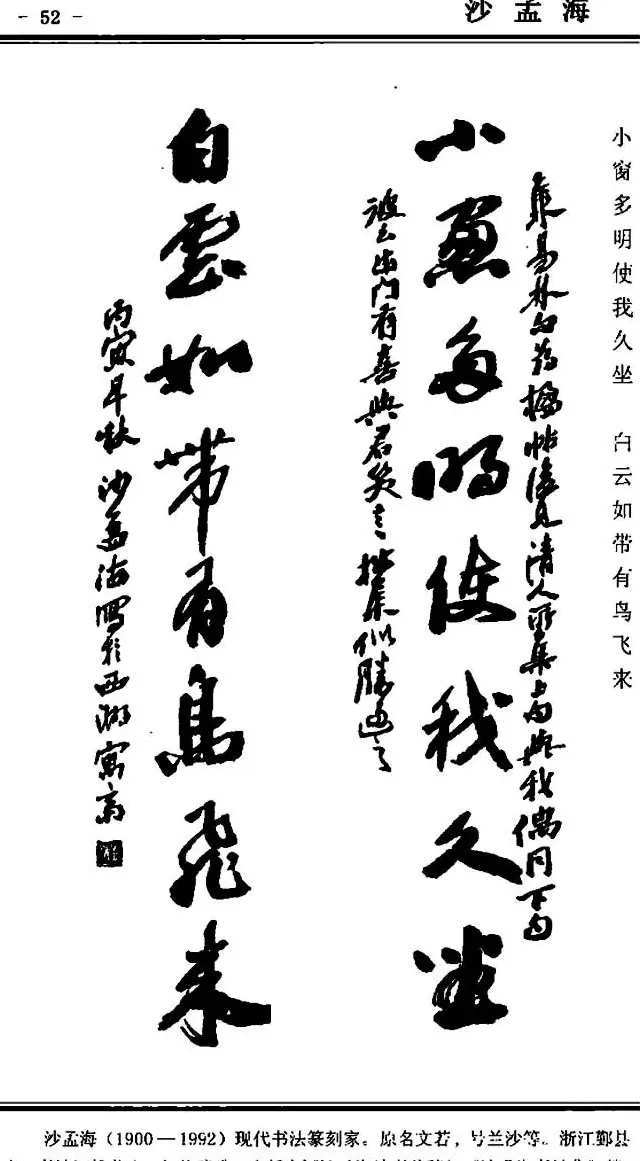 - 52 -
沙孟海
小窗多明使我久坐 白云如带有鸟飞来
集易林句为楹帖后见清人所集上句与我偶同下句
小窗多明使我久坐
彼云出门有喜与君笑言拙集似胜过之
白雲如带有鳥飛来
丙寅早秋沙孟海写於西湖寓斋
沙孟海（1900—1992）现代书法篆刻家。原名文若，号兰沙等。浙江鄞县